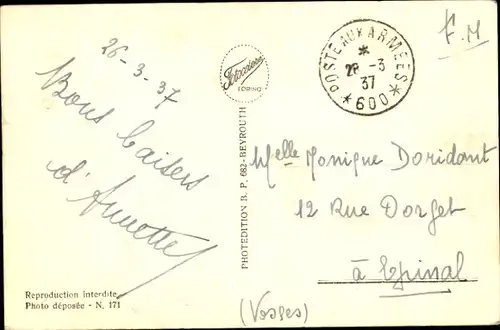 26-3-37
Bons baisers
d'Annette
Reproduction interdite
Photo déposée - N. 171
Ferrania
TORINO
PHOTEDITION B. P. 682-BEYROUTH
POSTE AUX ARMEES
*
26 -3
37
* 600 *
F.M
Melle Monique Doridant
12 Rue Dorget
à Epinal
(Vosges)